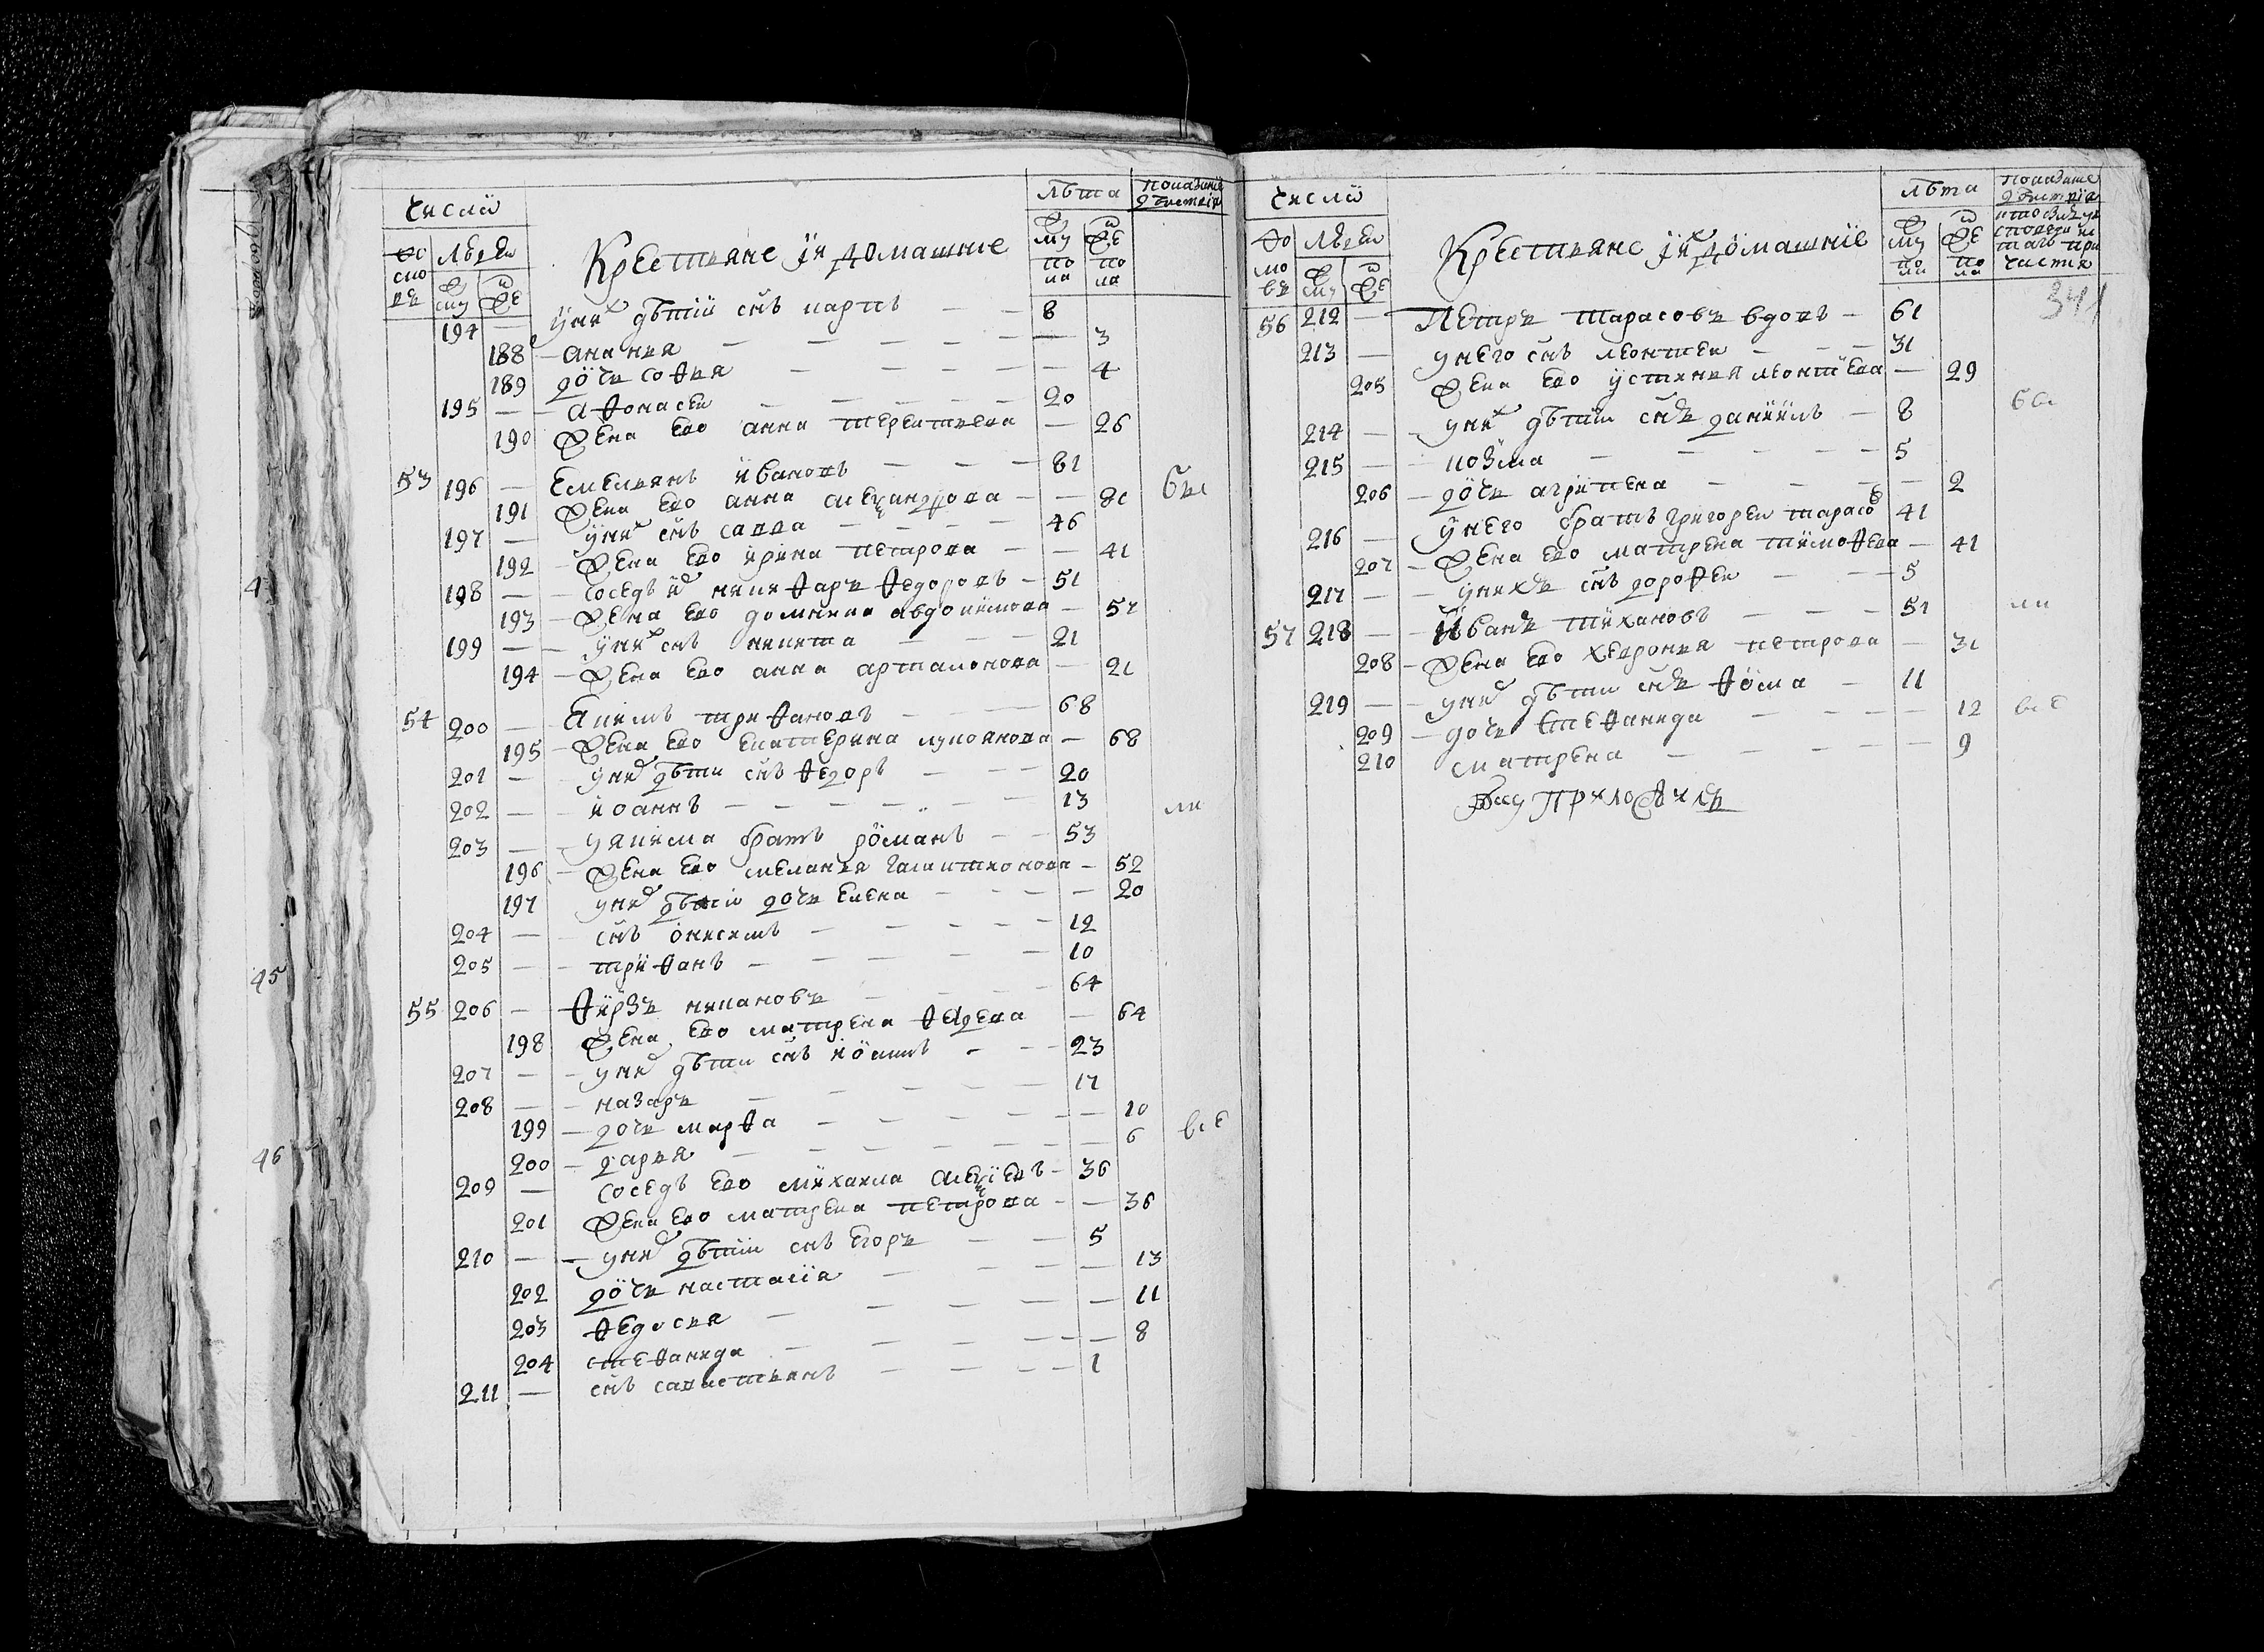 Числа
Дво
ро
въ
Людеи
му
же
Крестьяне и их домашние
Лѣта
му
по
ла
же
по
ла
показание
действия
194 — у них дѣти снъ карпъ — — 8
188 — анання — — — — — 3
189 дочь софья — — — — 4
195 — — афонасеи — — — — 20
190 жена ево анна терентьева — 26
53 196 — Емельянъ ивановъ — — — 81
191 жена ево анна александрова — — 80
197 — у них снъ савва — — — — 46
192 — жена ево ирина петрова — — 41
198 — — соседъ их никифаръ федоровъ — 51
193 — жена ево домника авдокимова — 57
199 — — у них снъ никита — — — 21
194 — жена ево анна артамонова — 21
54 200 — Екимъ трифановъ — — 68
195 — жена ево екатерина лукоянова — 68
201 — у них дѣти снъ федоръ — — — 20
202 — — иоаннъ — — — — — — 13
203 — — у якима братъ романъ — — 53
196 — жена ево меланья галактионова — 52
197 у них дѣти дочь елена — — — — 20
204 — — снъ онисимъ — — — — — 12
205 — — трифанъ — — — — — 10
55 206 — Фирзъ никановъ — — — — 64
198 жена ево матрена фадеева — 64
207 — — у них дѣти снъ иоаннъ — — — 23
208 — — назаръ — — — — — 17
199 — дочь марфа — — — — — — 10
200 — дарья — — — — — — 6
209 — соседъ ево михаила алексеевъ — 36
201 жена ево матрена петрова — — 36
210 — — у них дѣти снъ егоръ — — 5
202 дочь настасия — — — — 13
203 федосья — — — — — 11
204 стефанида — — — — — 8
211 — снъ савастьянъ — — — — 1
всѣ
45
46
Числа
Дво
ро
въ
Людеи
му
же
Крестьяне и их домашние
Лѣта
му
по
ла
же
по
ла
показание
действия
341
56 212 — Петръ тарасовъ вдовъ — 61
213 — у него снъ леонтеи — — — 31
205 жена ево устинья леонтьева — 29
214 — — у них дѣти снъ даниилъ — 8
215 — — козма — — — — — 5
206 — дочь агрипена — — — — 2
216 — у него братъ григореи тарасов 41
207 — жена ево матрена тимофева — 41
217 — — у нихъ снъ дорофеи — — — 5
57 218 — — Иванъ тихановъ — — — 51
208 — жена ево хеврония петрова — 31
219 — — у них дѣти снъ фома — 11
209 — дочь стефанида — — — — 12
210 матрена — — — — — 9
всѣ